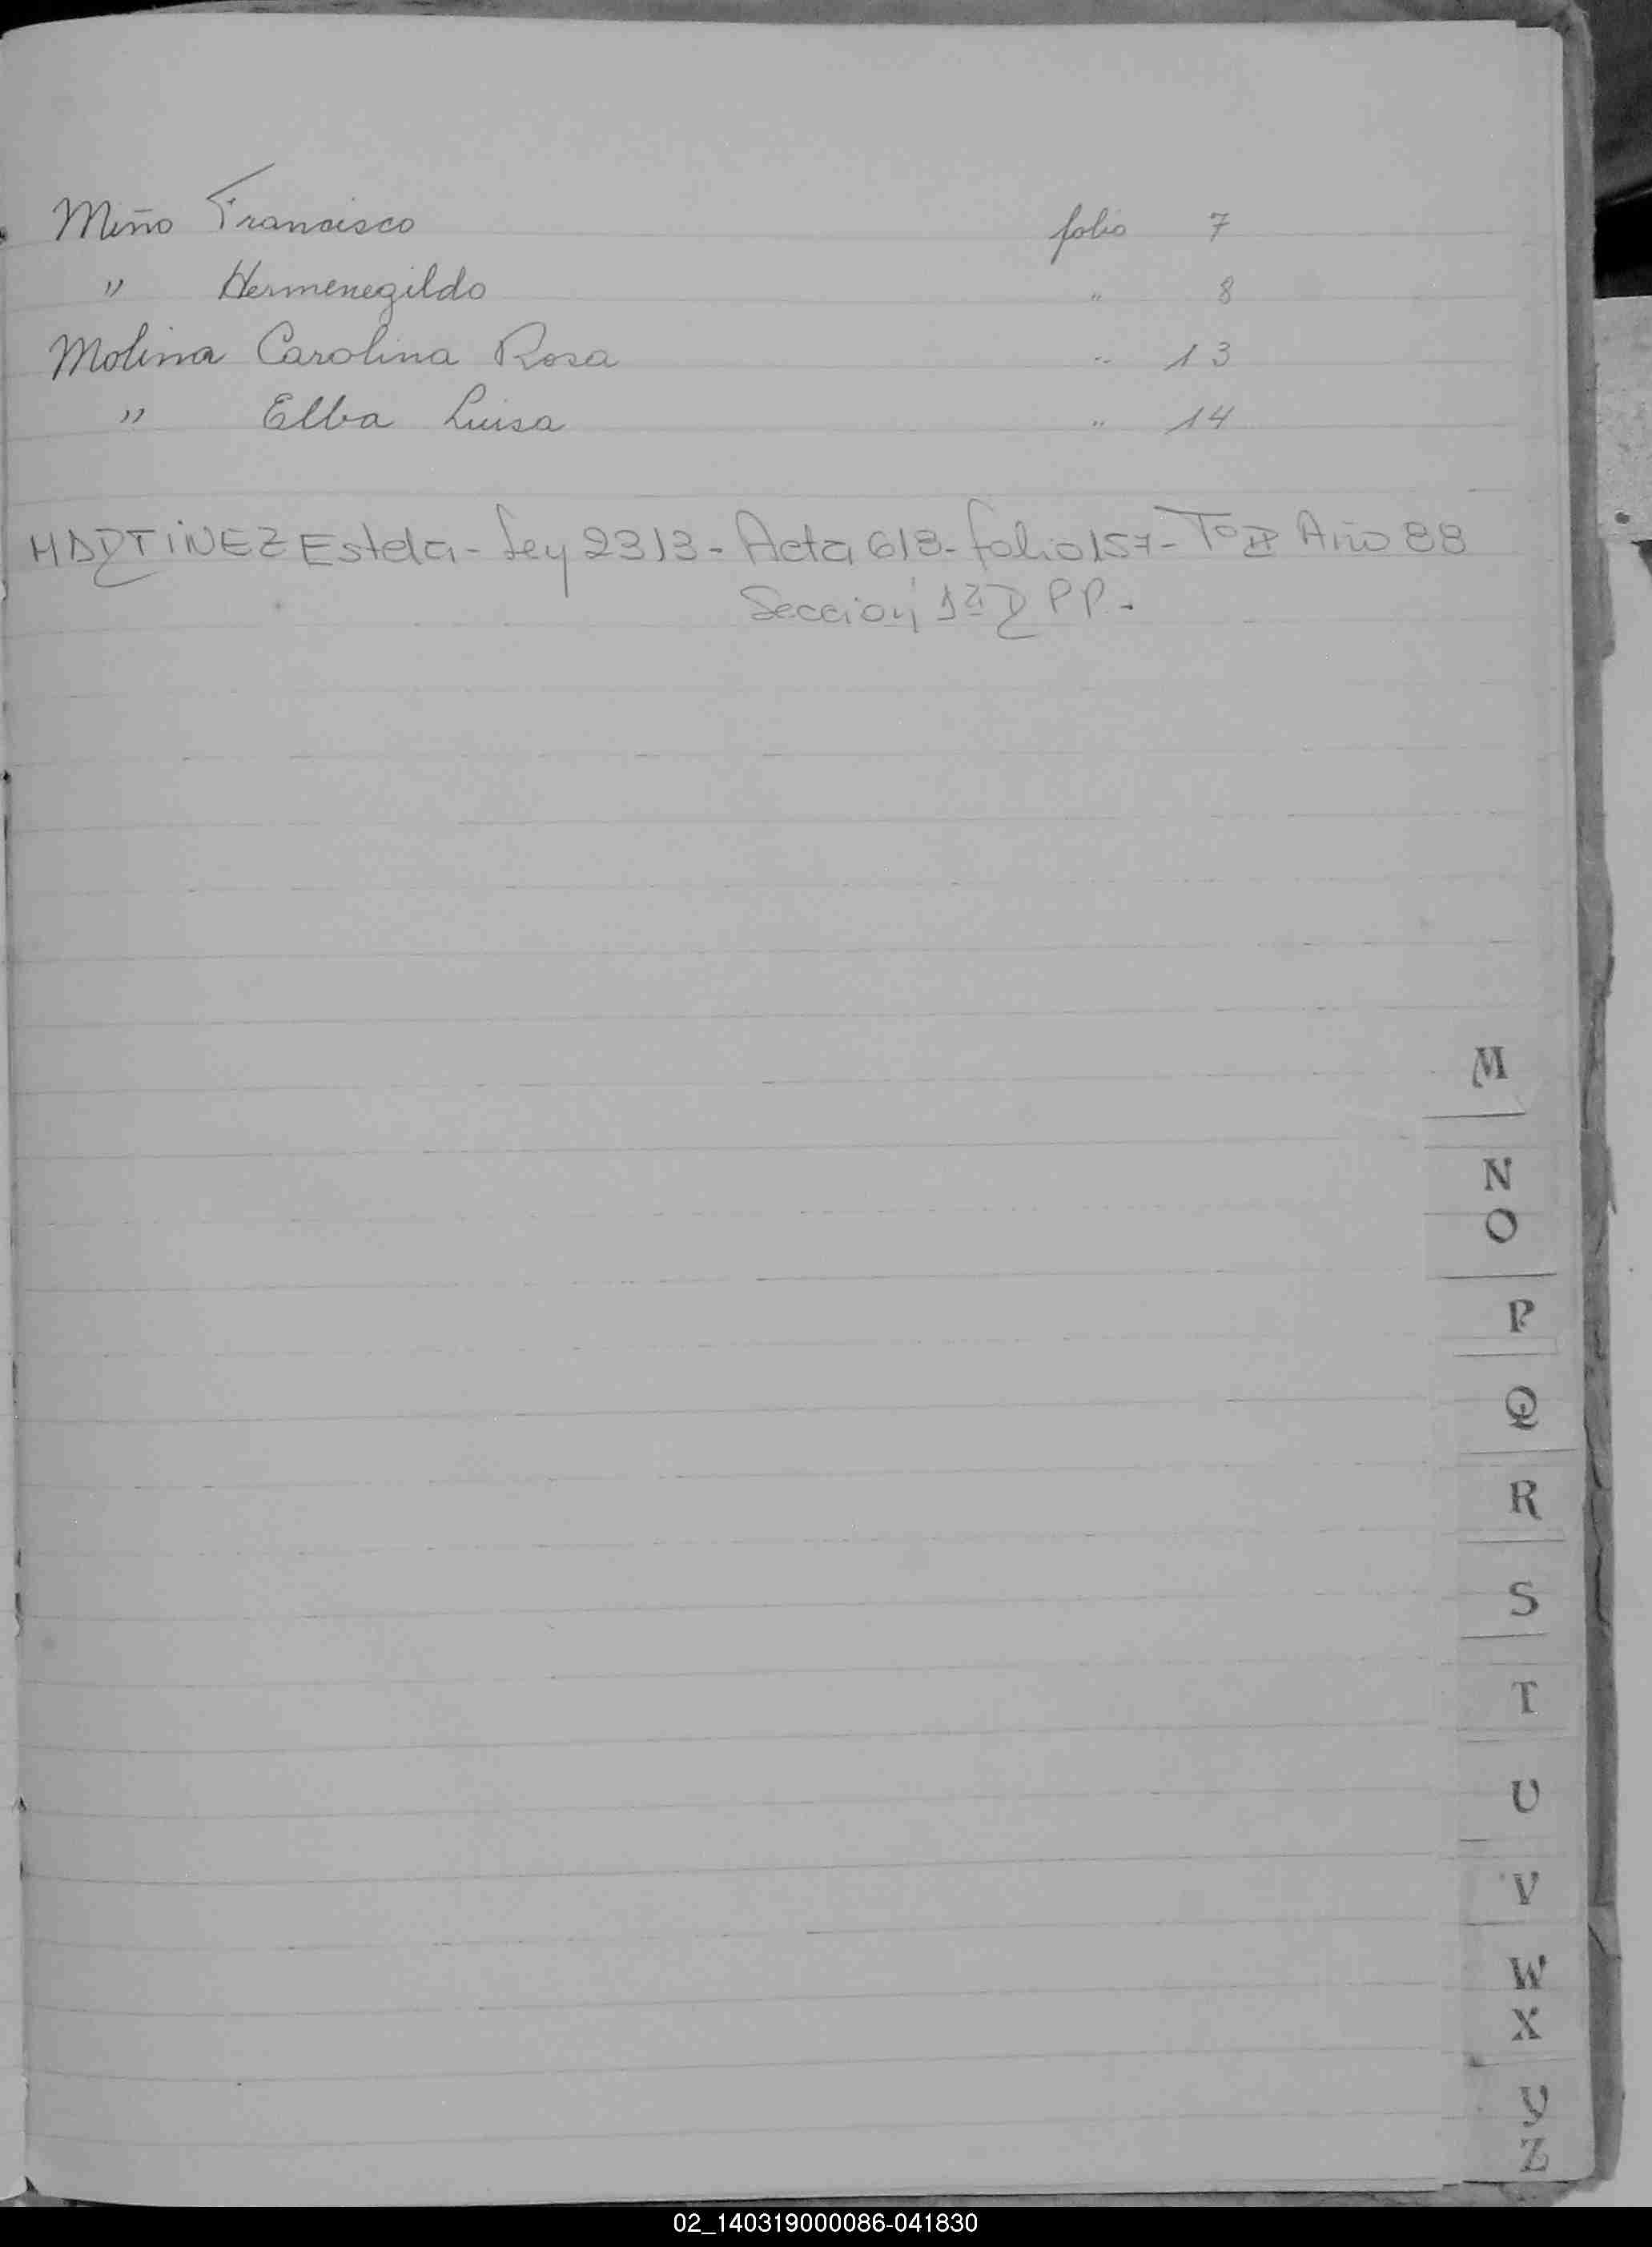 Miño Francisco folio 7
" Hermenegildo " 8
Molina Carolina Rosa " 13
" Elba Luisa " 14
MARTINEZ Estela - Ley 2313 - Acta 613 - folio 157 - Tº II Año 88
Sección 1ª PP.-
M
N
O
P
Q
R
S
T
U
V
W
X
Y
Z
02_140319000086-041830